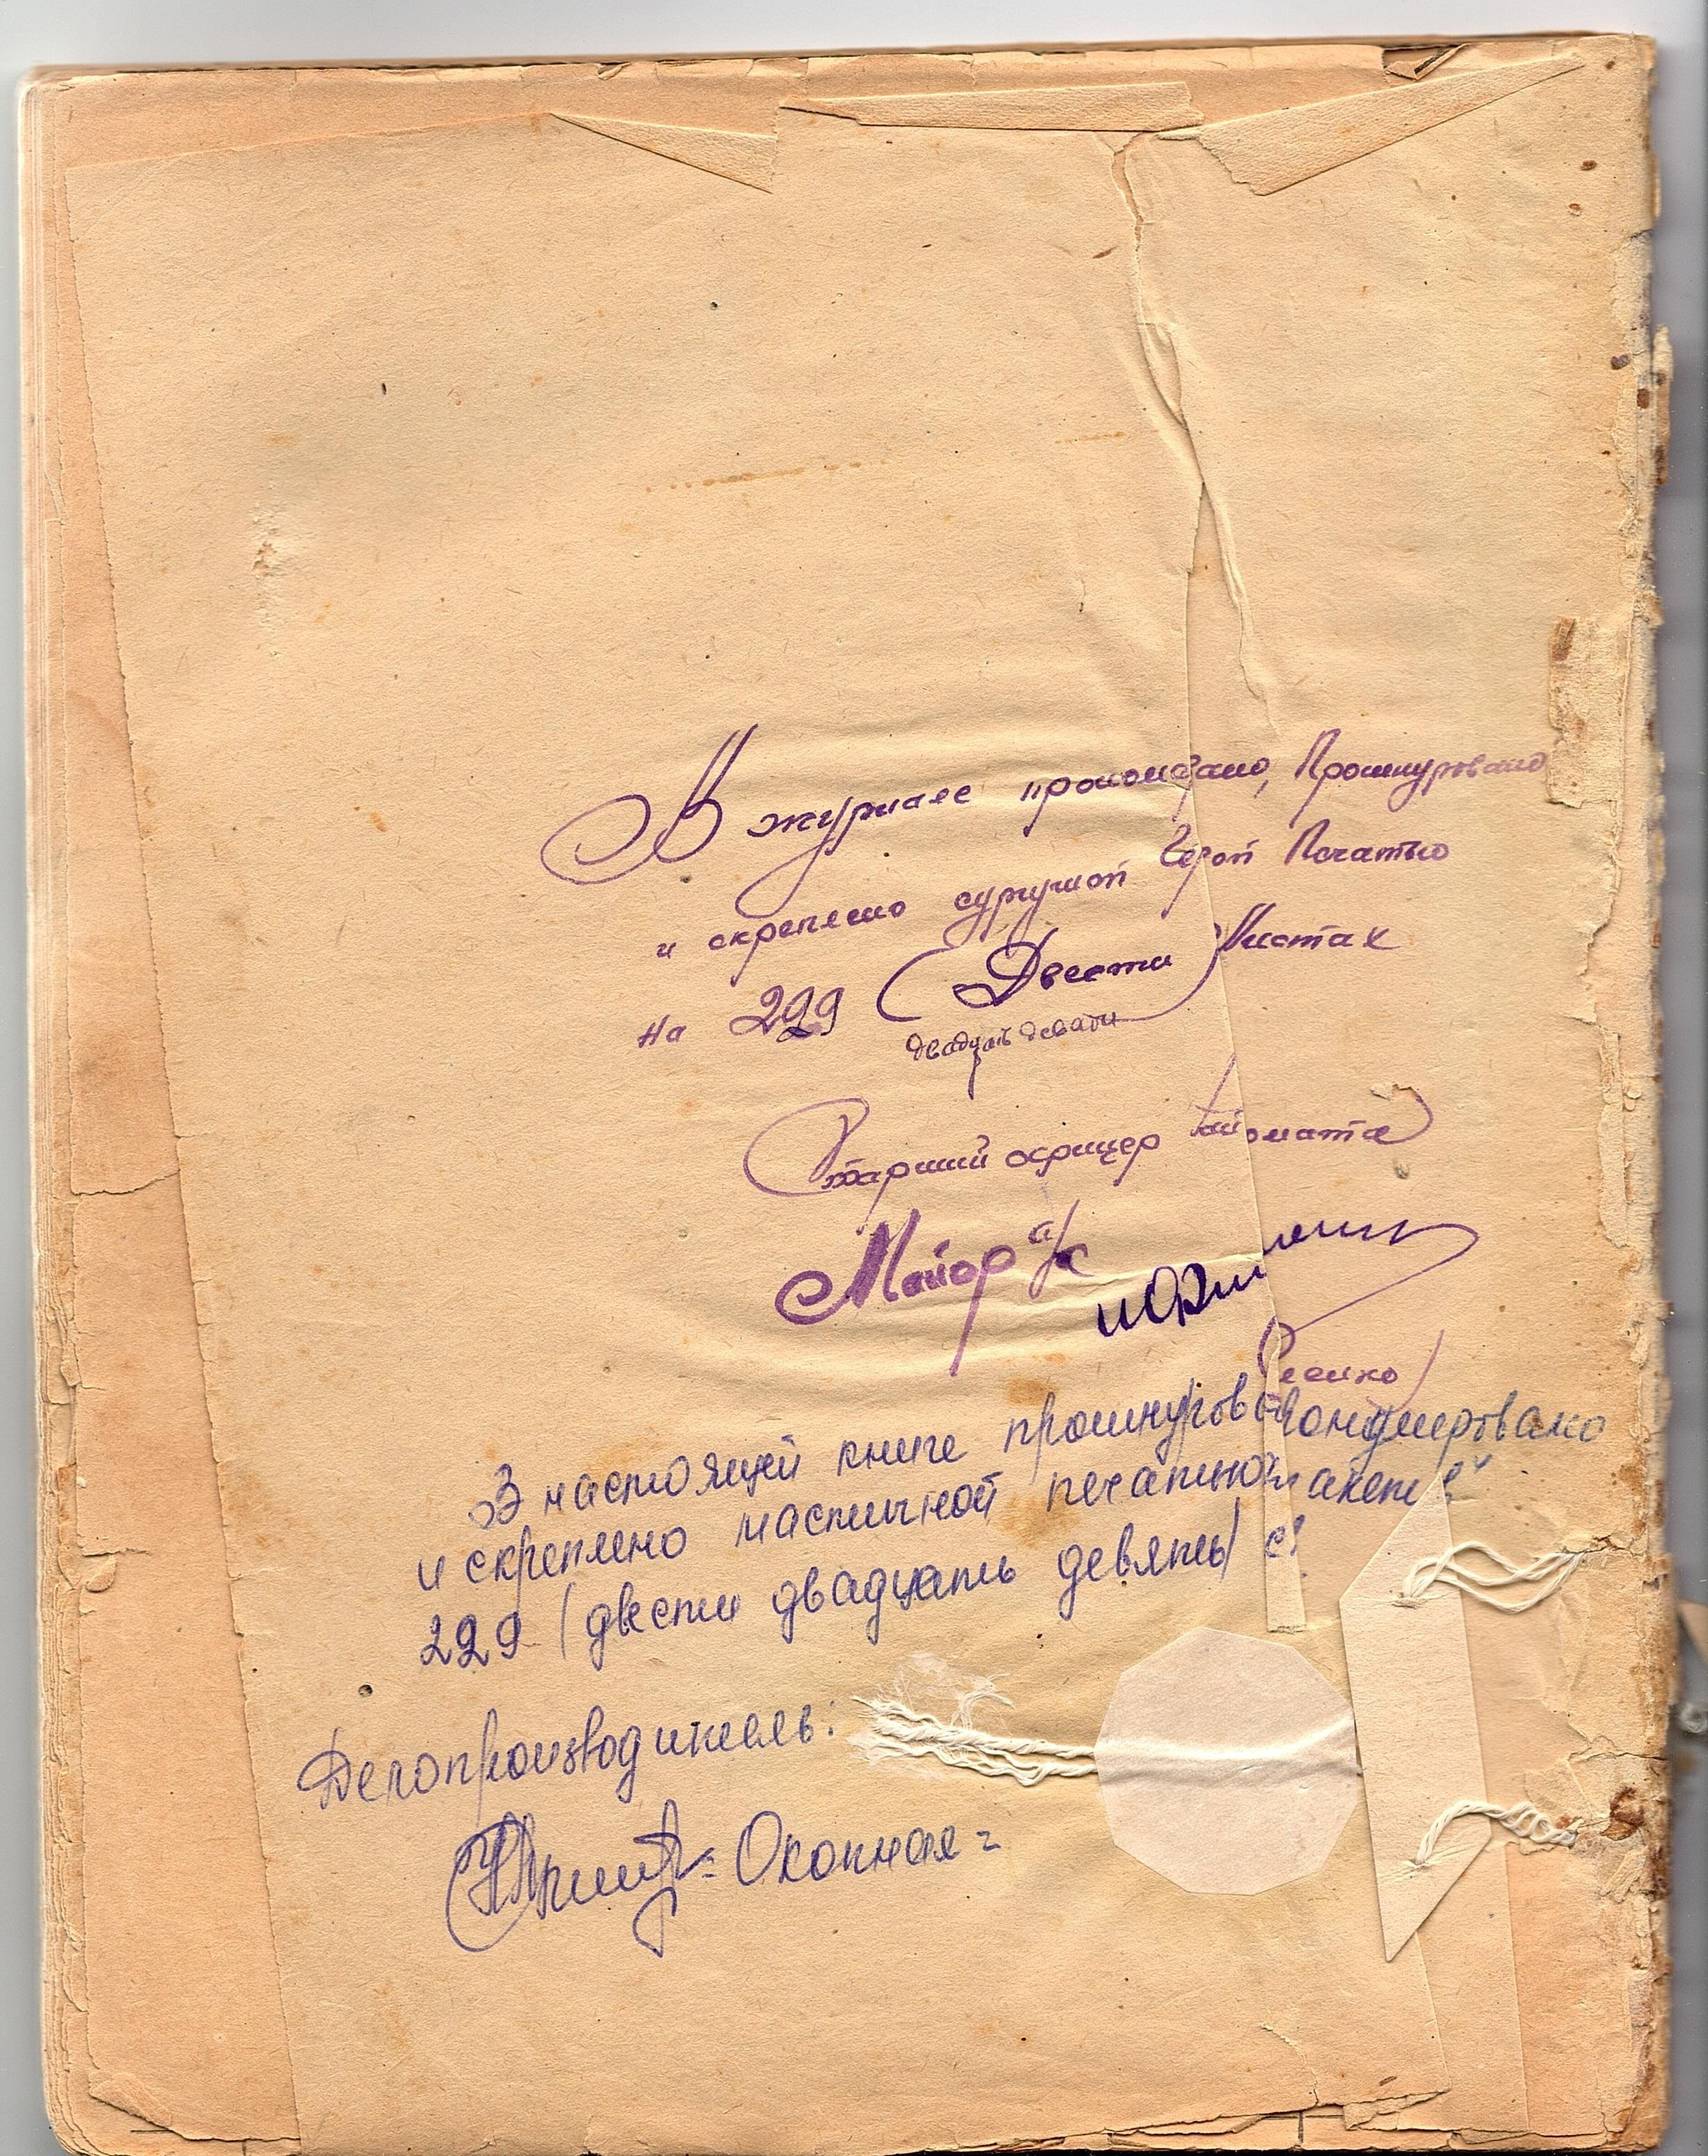 В журнале пронумеровано, Прошнуровано
и скреплено сургучной Герой Печатью
на 229 (Двести Листах
двадцать девяти
Старший офицер
Майор а/с
ленко)
В настоящей книге прошнуров пронумеровано
и скреплено мастичной печатью пакетов
229 (двести двадцать девять)
Делопроизводитель:
= Окопная =